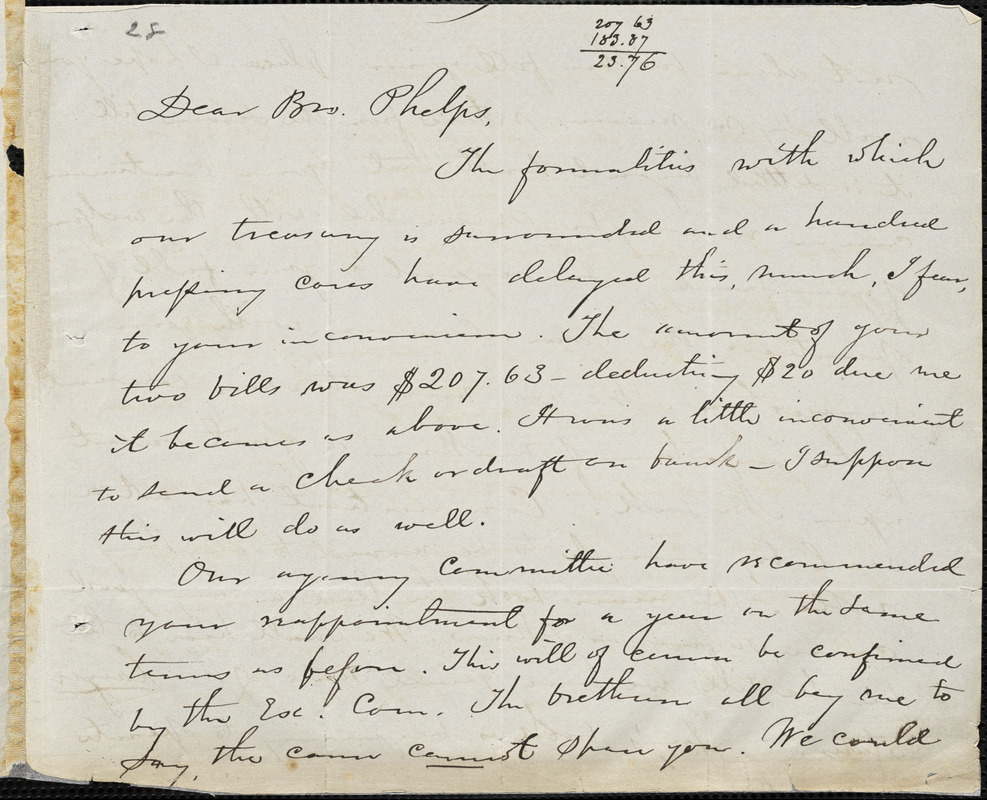 28
207 63
183.87
23.76
Dear Bro. Phelps,
The formalities with which
our treasury is surrounded and a hundred
pressing cares have delayed this, much, I fear,
to your inconvenience. The amount of your
two bills was $207.63 – deducting $20 due me
it becomes as above. It was a little inconvenient
to send a check or draft on bank – I suppose
this will do as well.
Our agency Committee have recommended
your reappointment for a year on the same
terms as before. This will of course be confirmed
by the Exe. Com. The brethren all beg me to
say, the cause cannot spare you. We could